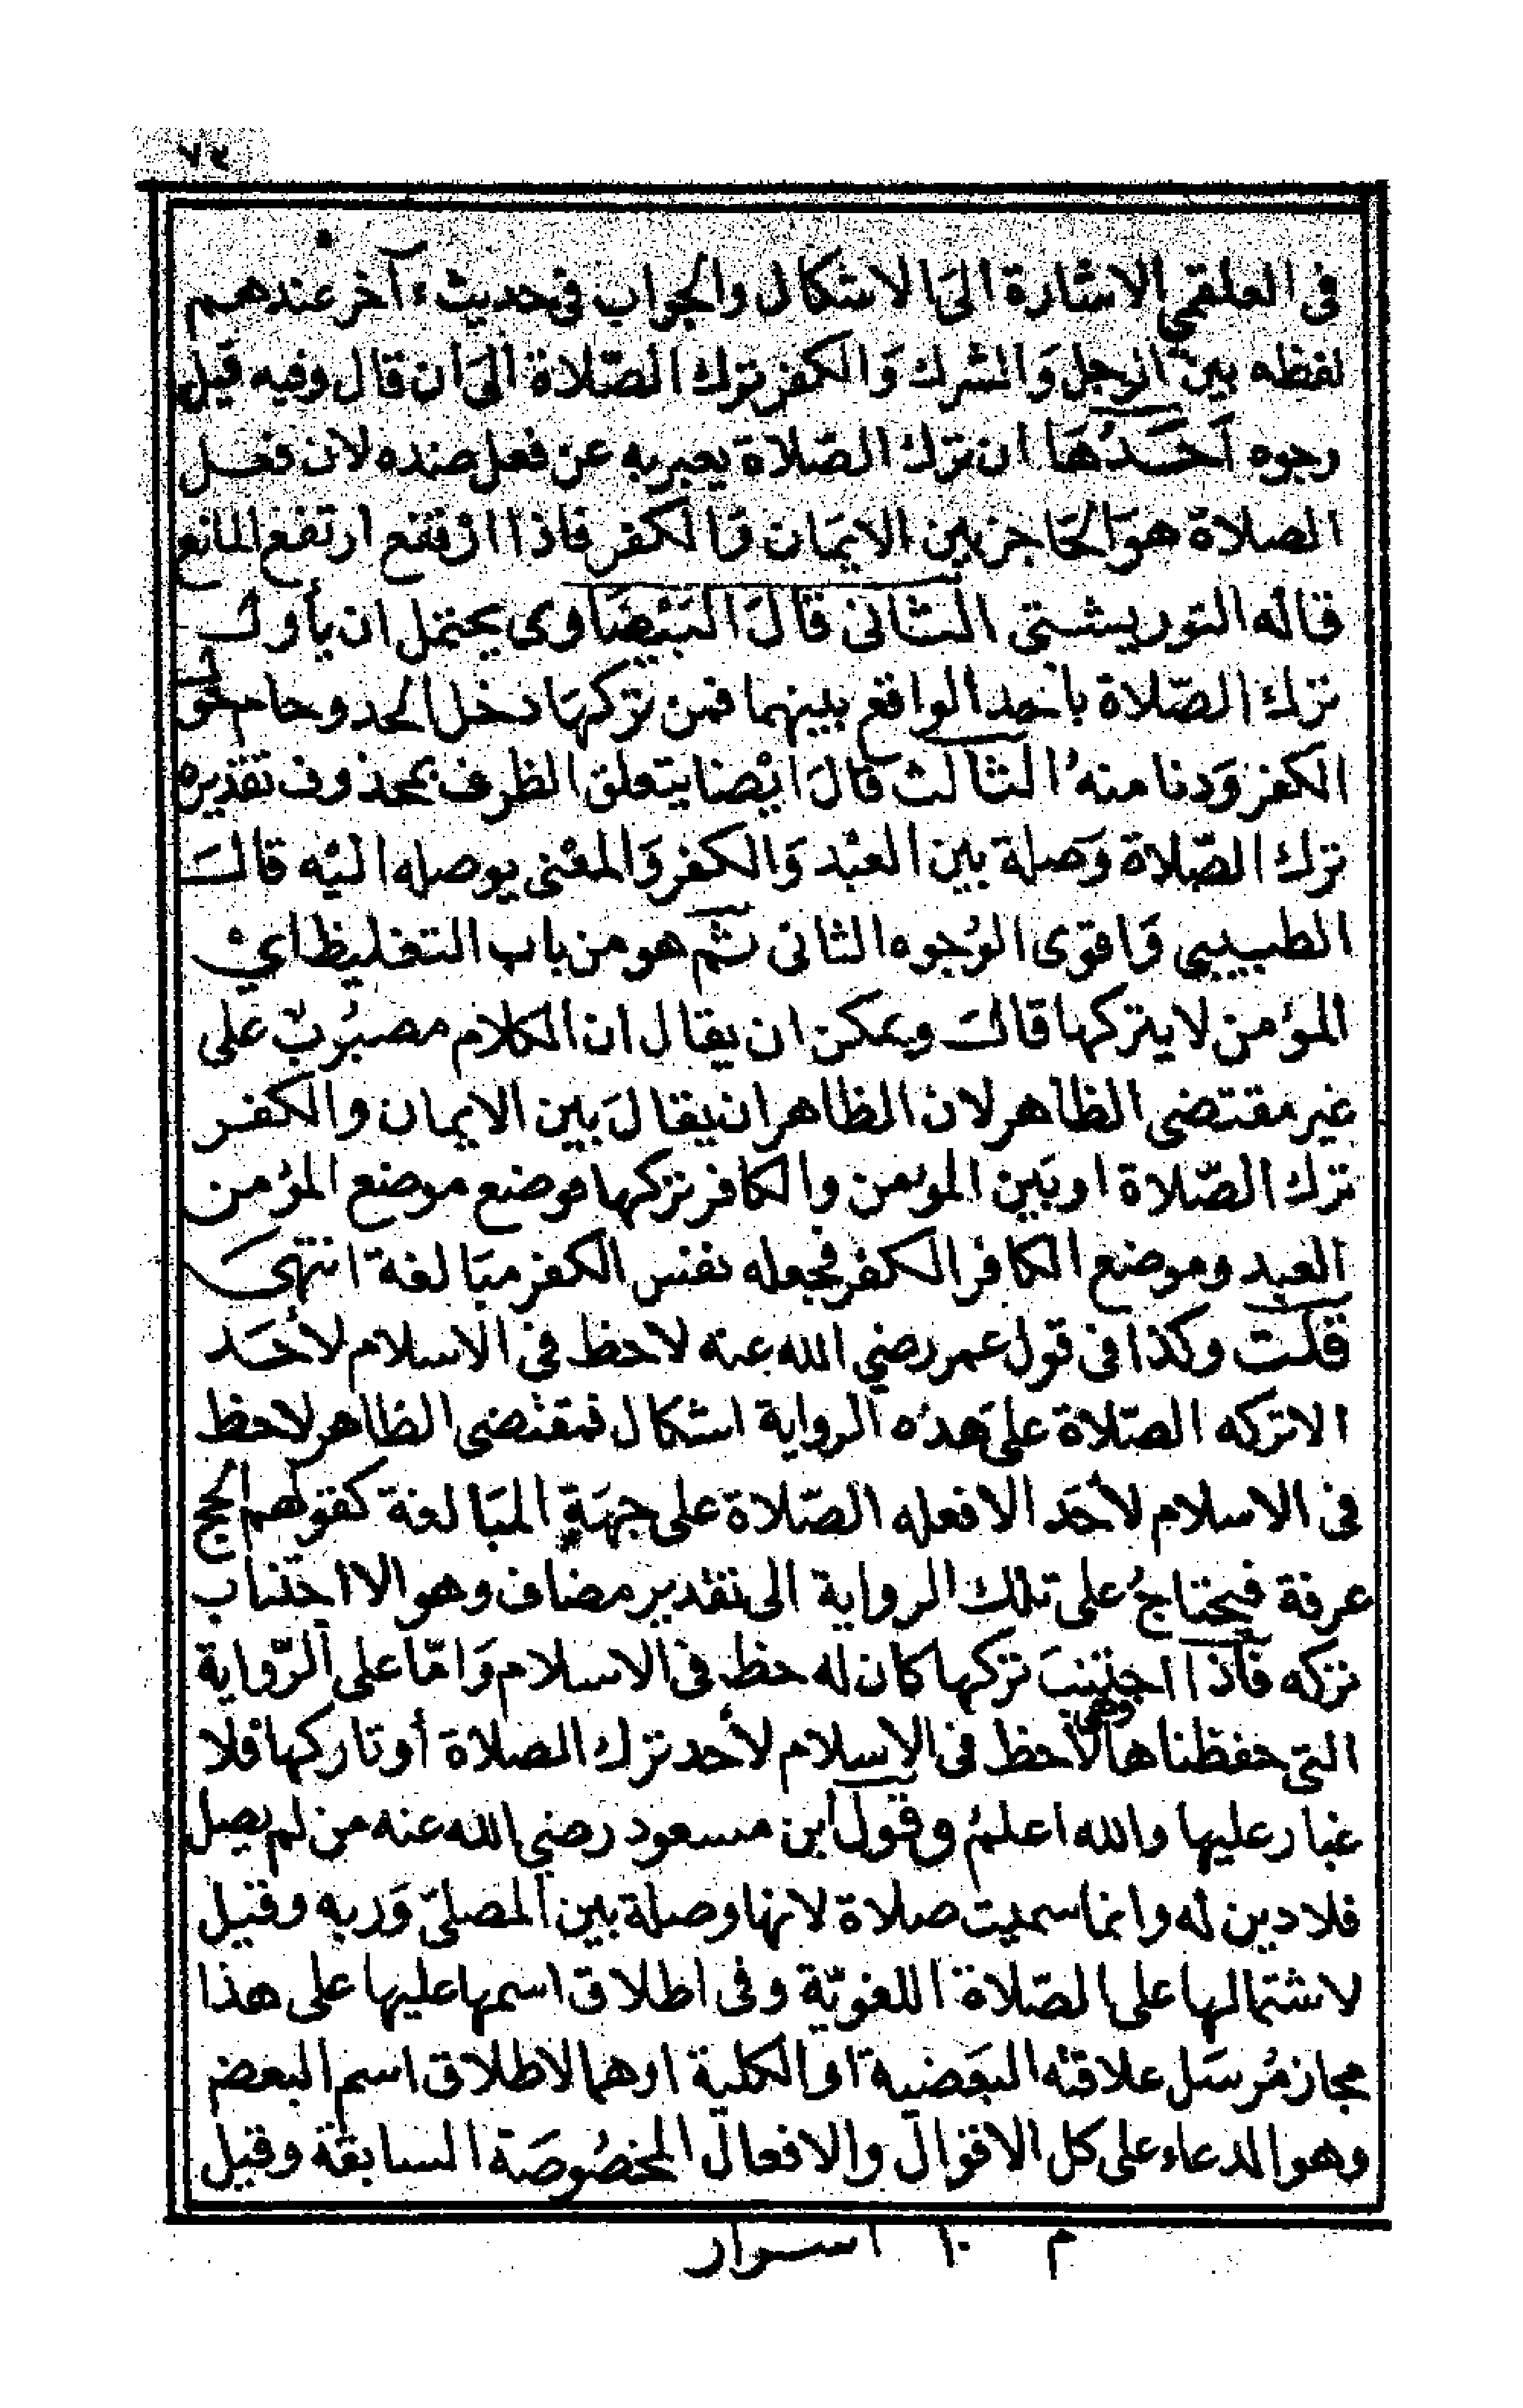 ٧٤
في العلقمي الاشارة الى الاشكال والجواب في حديث آخر عندهم
لفظه بين الرجل وَالمشرك وَالكفر ترك الصّلاة الىَ ان قال وفيه قيل
وجوه اَحَدُهَا ان ترك الصّلاة يعبر به عن فعل ضده لان فعل
الصلاة هوَ الحَاجز بين الايمَان وَالكفر فاذا ارتفع ارتفع المانع
قاله التوربشتى الثانى قالَ البَيْضَاوى يحتمل ان يأول
ترك الصّلاة بالحد الواقع بينهما فمن تركهَا دخل الحد وحام حول
الكفر وَدنا منهُ الثالث قالَ ايْضا يتعلق الظرف بمحذوف تقديره
ترك الصّلاة وَصلة بين العبْد وَالكفر وَالمعْنى يوصله اليْه قالَ
الطيبي وَاقوى الوُجوه الثانى ثم هو من باب التغليظ اي
المؤمن لا يتركها قالَ ويمكن ان يقال ان الكلام مصبُوبٌ على
غير مقتضى الظاهر لان الظاهر ان يقالَ بين الايمان والكفر
ترك الصّلاة او بَين المؤمن والكافر تركها فوضع موضع المؤمن
العبد وموضع الكافر الكفر فجعله نفس الكفر مبَالغة انتهىَ
قلت وكذا فى قول عمر رضي الله عنه لا حظ في الاسلام لأحَد
الا تركه الصّلاة علىَ هذه الرواية اشكال فمقتضى الظاهر لا حظ
في الاسلام لأحَد الا فعله الصّلاة على جهَةِ المبَالغة كقولهم الحج
عرفة فيحتاجُ على تلك الرواية الى تقدير مضاف وهو الا اجتناب
تركه فاذا اجتنبَ تركها كان له حظ فى الاسلام وَامّا على الرّواية
التى حفظناها وهي لا حظ فى الاسلام لأحد ترك الصلاة أو تاركها فلا
غبار عليها والله اعلمُ وقول ابن مسعود رضي الله عنه من لم يصل
فلا دين له وانما سميت صلاة لانها وصلة بين المصلىّ وَربه وقيل
لاشتمالها على الصّلاة اللغويّة وفى اطلاق اسمها عليها على هذا
مجاز مُرسَل علاقته البَعضية او الكلية او هما لاطلاق اسم البعض
وهو الدعاء على كل الاقوال والافعال المخصُوصَة السابقة وقيل
م ١٠ اسرار